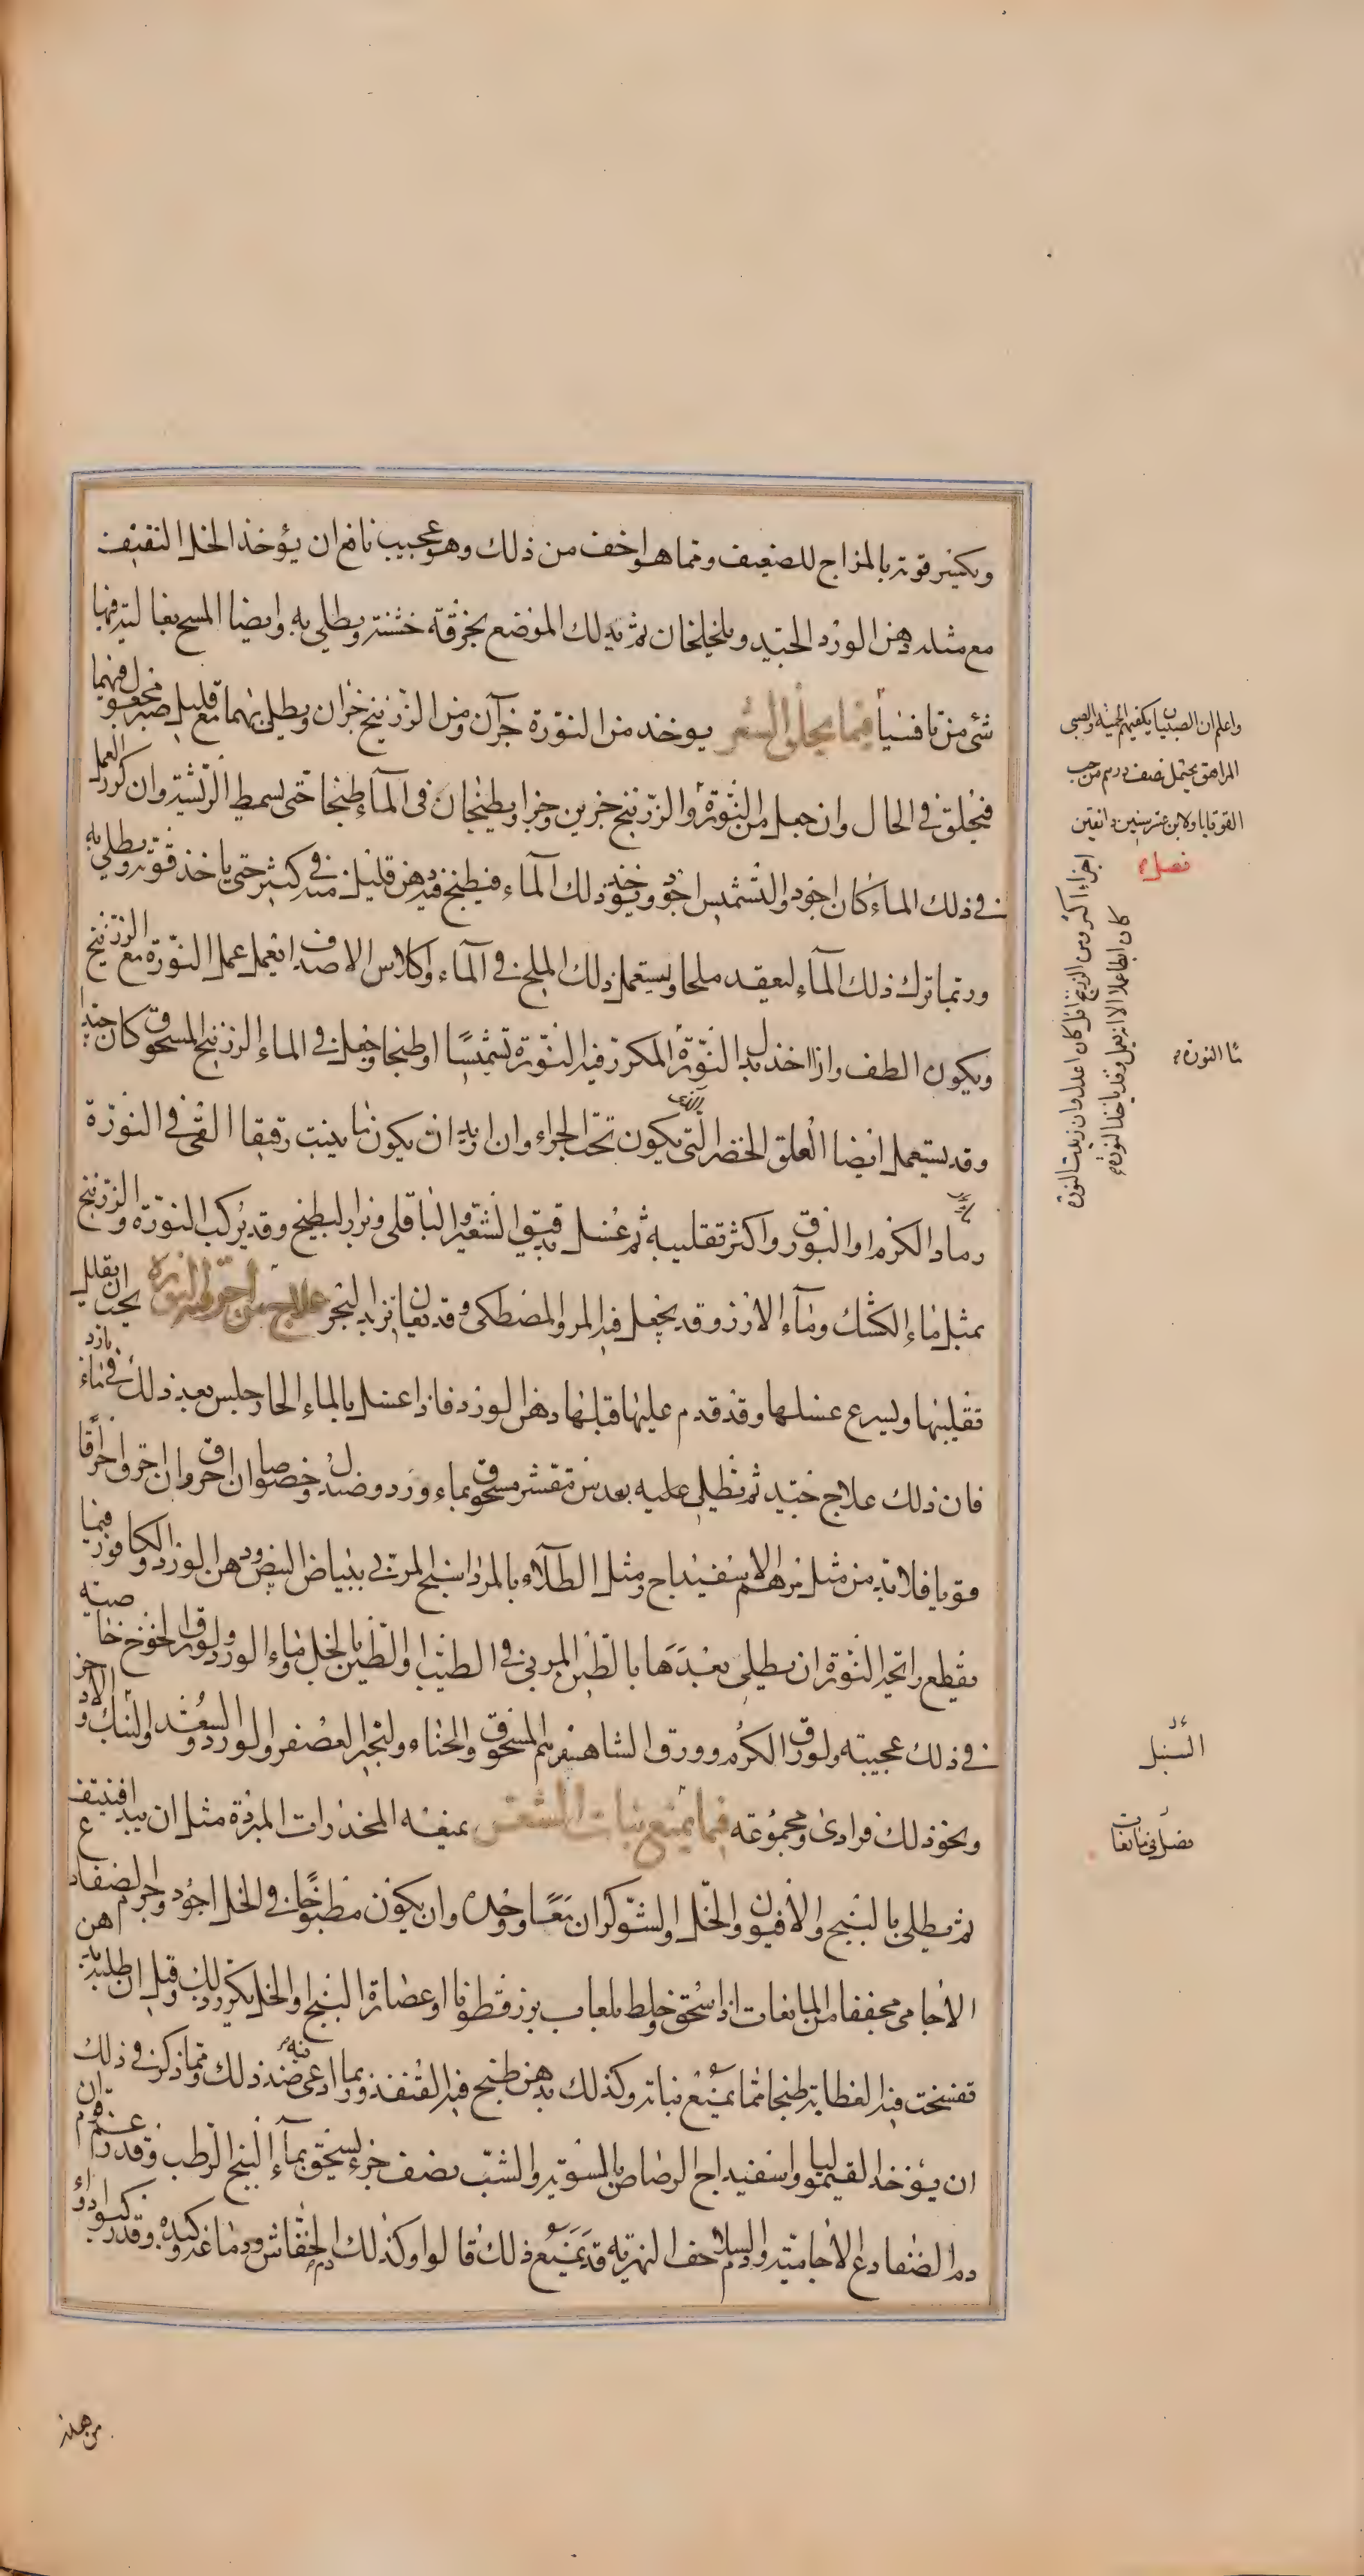 ويكسر قوته بالمزاج للضعيف ومما هو اخف من ذلك وهو عجيب نافع ان يؤخذ الخل الثقيف
مع مثله دهن الورد الجيد ويخلخلان ثم يدلك الموضع بخرقة خشنة ويطلي به وايضا المسح بغالية فيها
شئ من تافسيا فيما يحلق الشعر يوخذ من النورة جزآن ومن الزرنيخ جزان ويطلي بهما مع قليل صبر مجعول فيهما
فيحلق في الحال وان جعل من النورة والزرنيخ جزين وجزا ويطبخان فى المآء طبخا حتى يسمط الريشة وان كرر العمل
في ذلك الماء كان اجود والتشميس اجود ويؤخذ ذلك المآء فيطبخ فيه دهن قليل منه في كثير حتى ياخذ قوته ويطلي به
وربما ترك ذلك المآء لينعقد ملحا ويستعمل ذلك الملح في المآء وكلاس الاصداف ايعمل عمل النورة مع الزرنيخ
ويكون الطف واذا اخذ بدل النورة المكرر فيه النورة تشميسا او طبخا وجعل في الماء الزرنيخ المسحوق كان جيدا
وقد يستعمل ايضا العلق الخضر التي يكون تحت الجراء وان اريد ان يكون ما ينبت رقيقا القى في النورة
رماد الكرم او البورق واكثر تقليبه ثم غسل بدقيق الشعير والباقلى وبزر البطيخ وقد يركب النورة والزرنيخ
بمثل ماء الكشك ومآء الارز وقد يجعل فيه المر والمصطكى وقد يعان بزبد البحر علاج من احرقته النورة يجب ان يقلل
تقليبها ويسرع غسلها وقد قدم عليها قبلها دهن الورد فاذا غسل بالماء الحار جلس بعد ذلك في ماء بارد
فان ذلك علاج جيد ثم يطلي عليه بعدس مقشر مسحوق بماء ورد وصندل وخصوصا ان احرق وان احرق احراقا
قويا فلا بد من مثل مرهم الاسفيداج ومثل الطلاء بالمرداسنج المربي ببياض البيض ودهن الورد والكافور فيما
يقطع رائحة النورة ان يطلى بعدها بالطين المربى في الطيب او الطين بالخل وماء الورد ولورق الخوخ خاصية
في ذلك عجيبة ولورق الكرم وورق الشاهسفرم المسحوق والحناء وثجير العصفر والورد والسعد والسك والاذخر
ونحو ذلك فرادى ومجموعه فيما يمنع نبات الشعر يمنعه المخدرات المبردة مثل ان يبدا فينتف
ثم يطلى بالبنج والافيون والخل والشوكران معا ووحده وان يكون مطبوخا في الخل اجود واجرام الضفادع
الاجامى مجففا من المانعات اذا سحق وخلط بلعاب بزرقطونا او عصارة البنج والخل يكرر ذلك وقيل ان طلي بدهن
تفسخت فيه العظاية طبخا مما يمنع نباته وكذلك بدهن طبخ فيه القنفذ وربما ادعى فيه ضد ذلك ومما ذكر في ذلك
ان يؤخذ القيموليا واسفيداج الرصاص بالسوية والشب نصف جزء يسحق بمآء البنج الرطب وقد زعم قوم ان
دم الضفادع الاجامية والسلاحف النهرية قد يمنع ذلك قالوا وكذلك دم الخفاش ودماغه وكبده وقد ركبوا دواء
من هذه
واعلم ان الصبيان يكفيهم الحمية والصبي
المراهق يحتمل نصف درهم من حب
القوقايا ولابن عشر سنين دانقين
فصل
اجزاء اكثر ومن الزرنيخ اقل كان اعدل وان زيدت النورة
كان ابطأ عملا الا انه يعمل وقد ياخذ النورة
ماء النورة
السنبل
فصل في مانعات